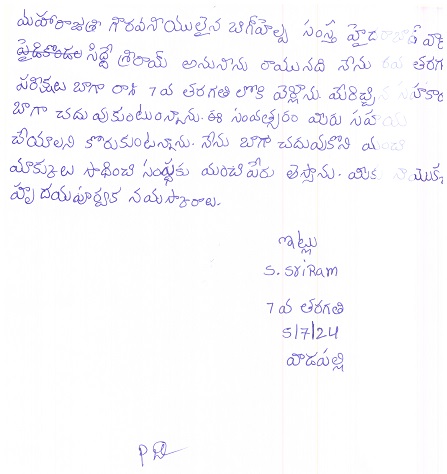 మహారాజశ్రీ గౌరవనీయులైన బిగ్‌హెల్ప్ సంస్థ హైదరాబాద్ వారికి
సిద్దే శ్రీరామ్ అనునేను రాయునది నేను 6వ తరగతి
పరీక్షలు బాగా రాసి 7 వ తరగతి లోకి వెళ్లాను. మీరిచ్చిన సహకారం
బాగా చదువుకుంటున్నాను. ఈ సంవత్సరం మీరు సహాయం
చేయాలని కోరుకుంటున్నాను. నేను బాగా చదువుకొని మంచి
మార్కులు సాధించి సంస్థకు మంచిపేరు తెస్తాను. మీకు నాయొక్క
హృదయపూర్వక నమస్కారాలు.
ఇట్లు
S. SriRam
7 వ తరగతి
5/7/24
వాడపల్లి